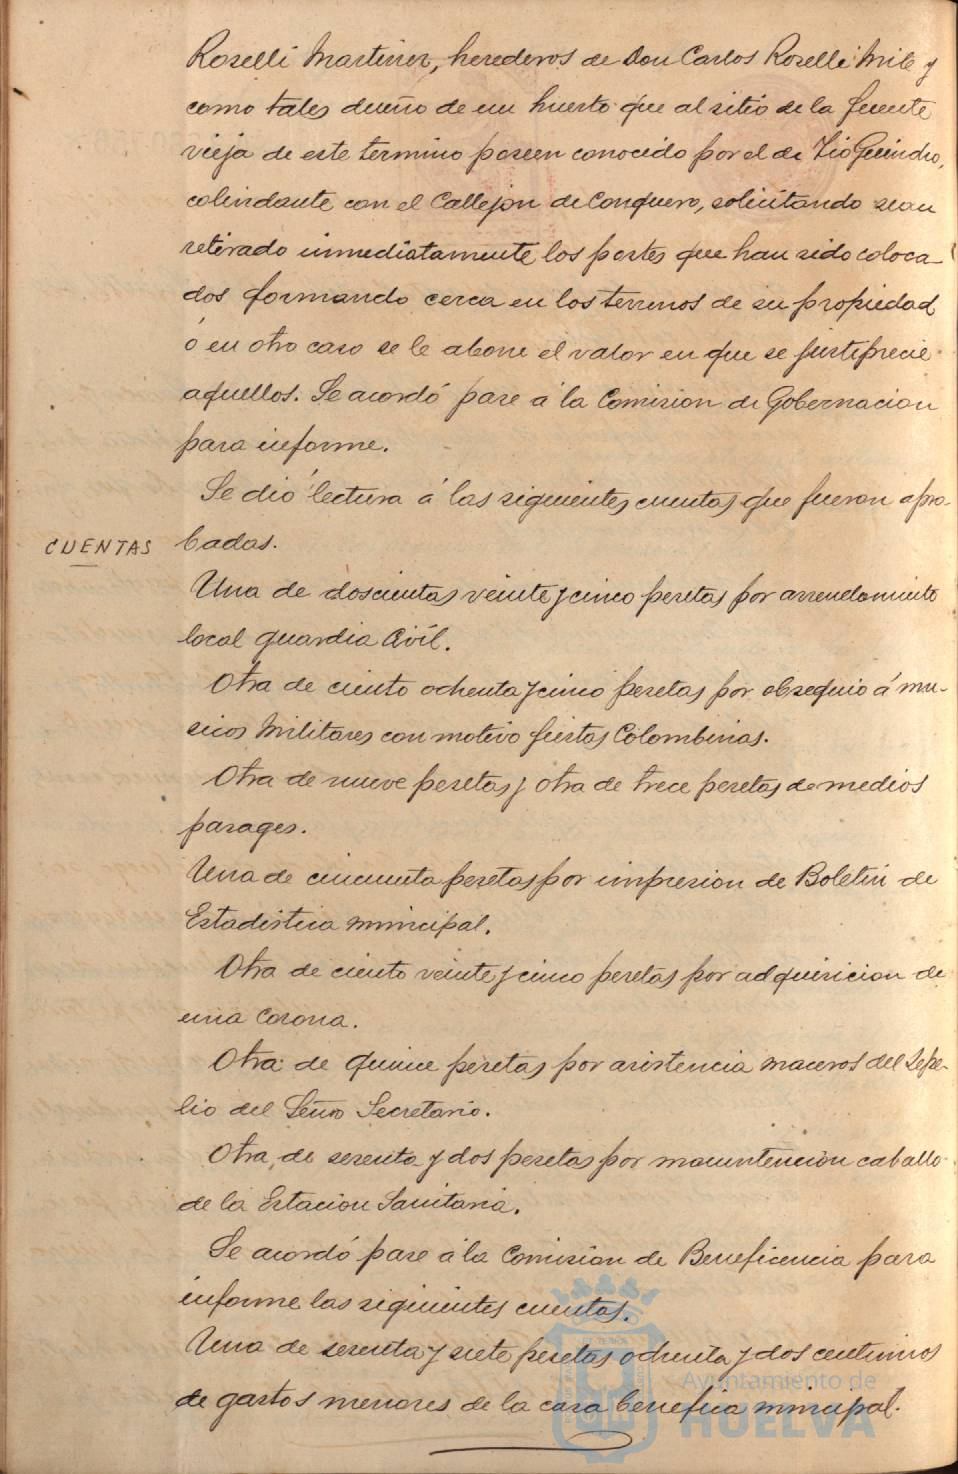 Roselli Martinez, herederos de Don Carlos Roselli Mile y
como tales dueño de un huerto que al sitio de la fuente
vieja de este termino poseen conocido por el de Tio Guindo,
colindante con el Callejon de Conquero, solicitando sean
retirado inmediatamente los postes que han sido coloca-
dos formando cerca en los terrenos de su propiedad
ó en otro caso se le abone el valor en que se justiprecie
aquellos. Se acordó pase á la Comision de Gobernacion
para informe.
Se dió lectura á las siguientes cuentas que fueron apro-
CUENTAS badas.
Una de doscientas veinte y cinco pesetas por arrendamiento
local guardia Civil.
Otra de ciento ochenta y cinco pesetas por obsequio á mu-
sicos Militares con motivo fiestas Colombinas.
Otra de nueve pesetas y otra de trece pesetas de medios
pasages.
Una de cincuenta pesetas por impresion de Boletin de
Estadistica municipal.
Otra de ciento veinte y cinco pesetas por adquisicion de
una Corona.
Otra de quince pesetas por asistencia maceros del Sepe-
lio del Señor Secretario.
Otra de sesenta y dos pesetas por manuntencion caballo
de la Estacion Sanitaria.
Se acordó pase á la Comision de Beneficencia para
informe las siguientes cuentas.
Una de sesenta y siete pesetas ochenta y dos centimos
de gastos menores de la casa benefica municipal.
Ayuntamiento de
HUELVA